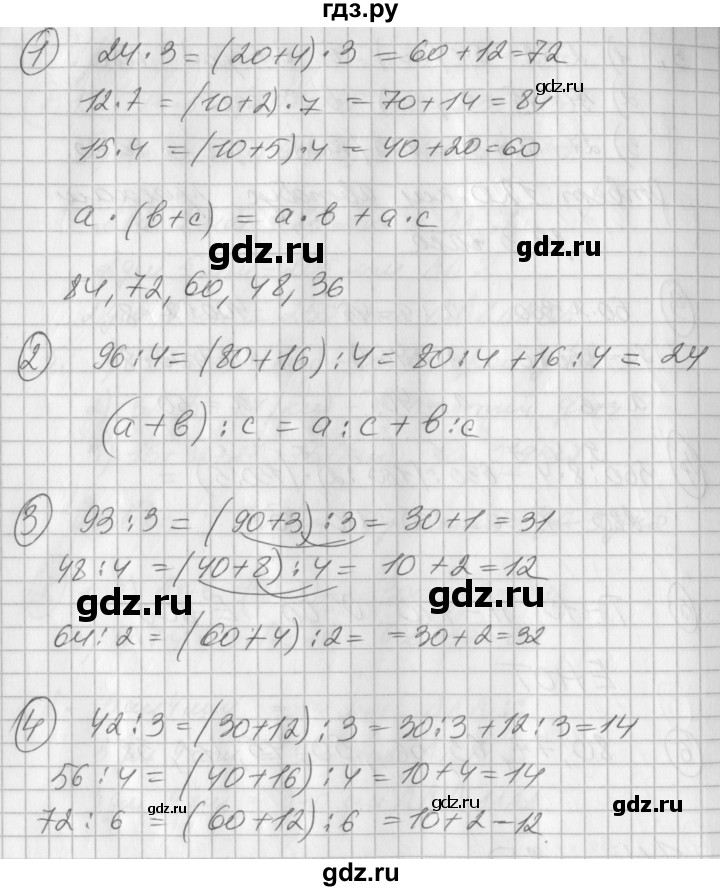 гдз.ру
① 24·3=(20+4)·3 =60+12=72
gdz.ru
12·7 =(10+2)·7 =70+14=84
15·4 =(10+5)·4 =40+20=60
а·(в+с) = а·в+а·с
gdz.ru gdz.ru
84, 72, 60, 48, 36
② 96:4=(80+16):4=80:4+16:4= 24
(а+в):с = а:с+в:с
③ 93:3=(90+3):3= 30+1=31
48:4 =(40+8):4= 10+2=12
gdz.ru gdz.ru
64:2=(60+4):2= =30+2=32
④ 42:3=(30+12):3=30:3+12:3=14
56:4=(40+16):4=10+4=14
gdz.ru gdz.ru gdz.ru
72:6 =(60+12):6 =10+2-12
gdz.ru